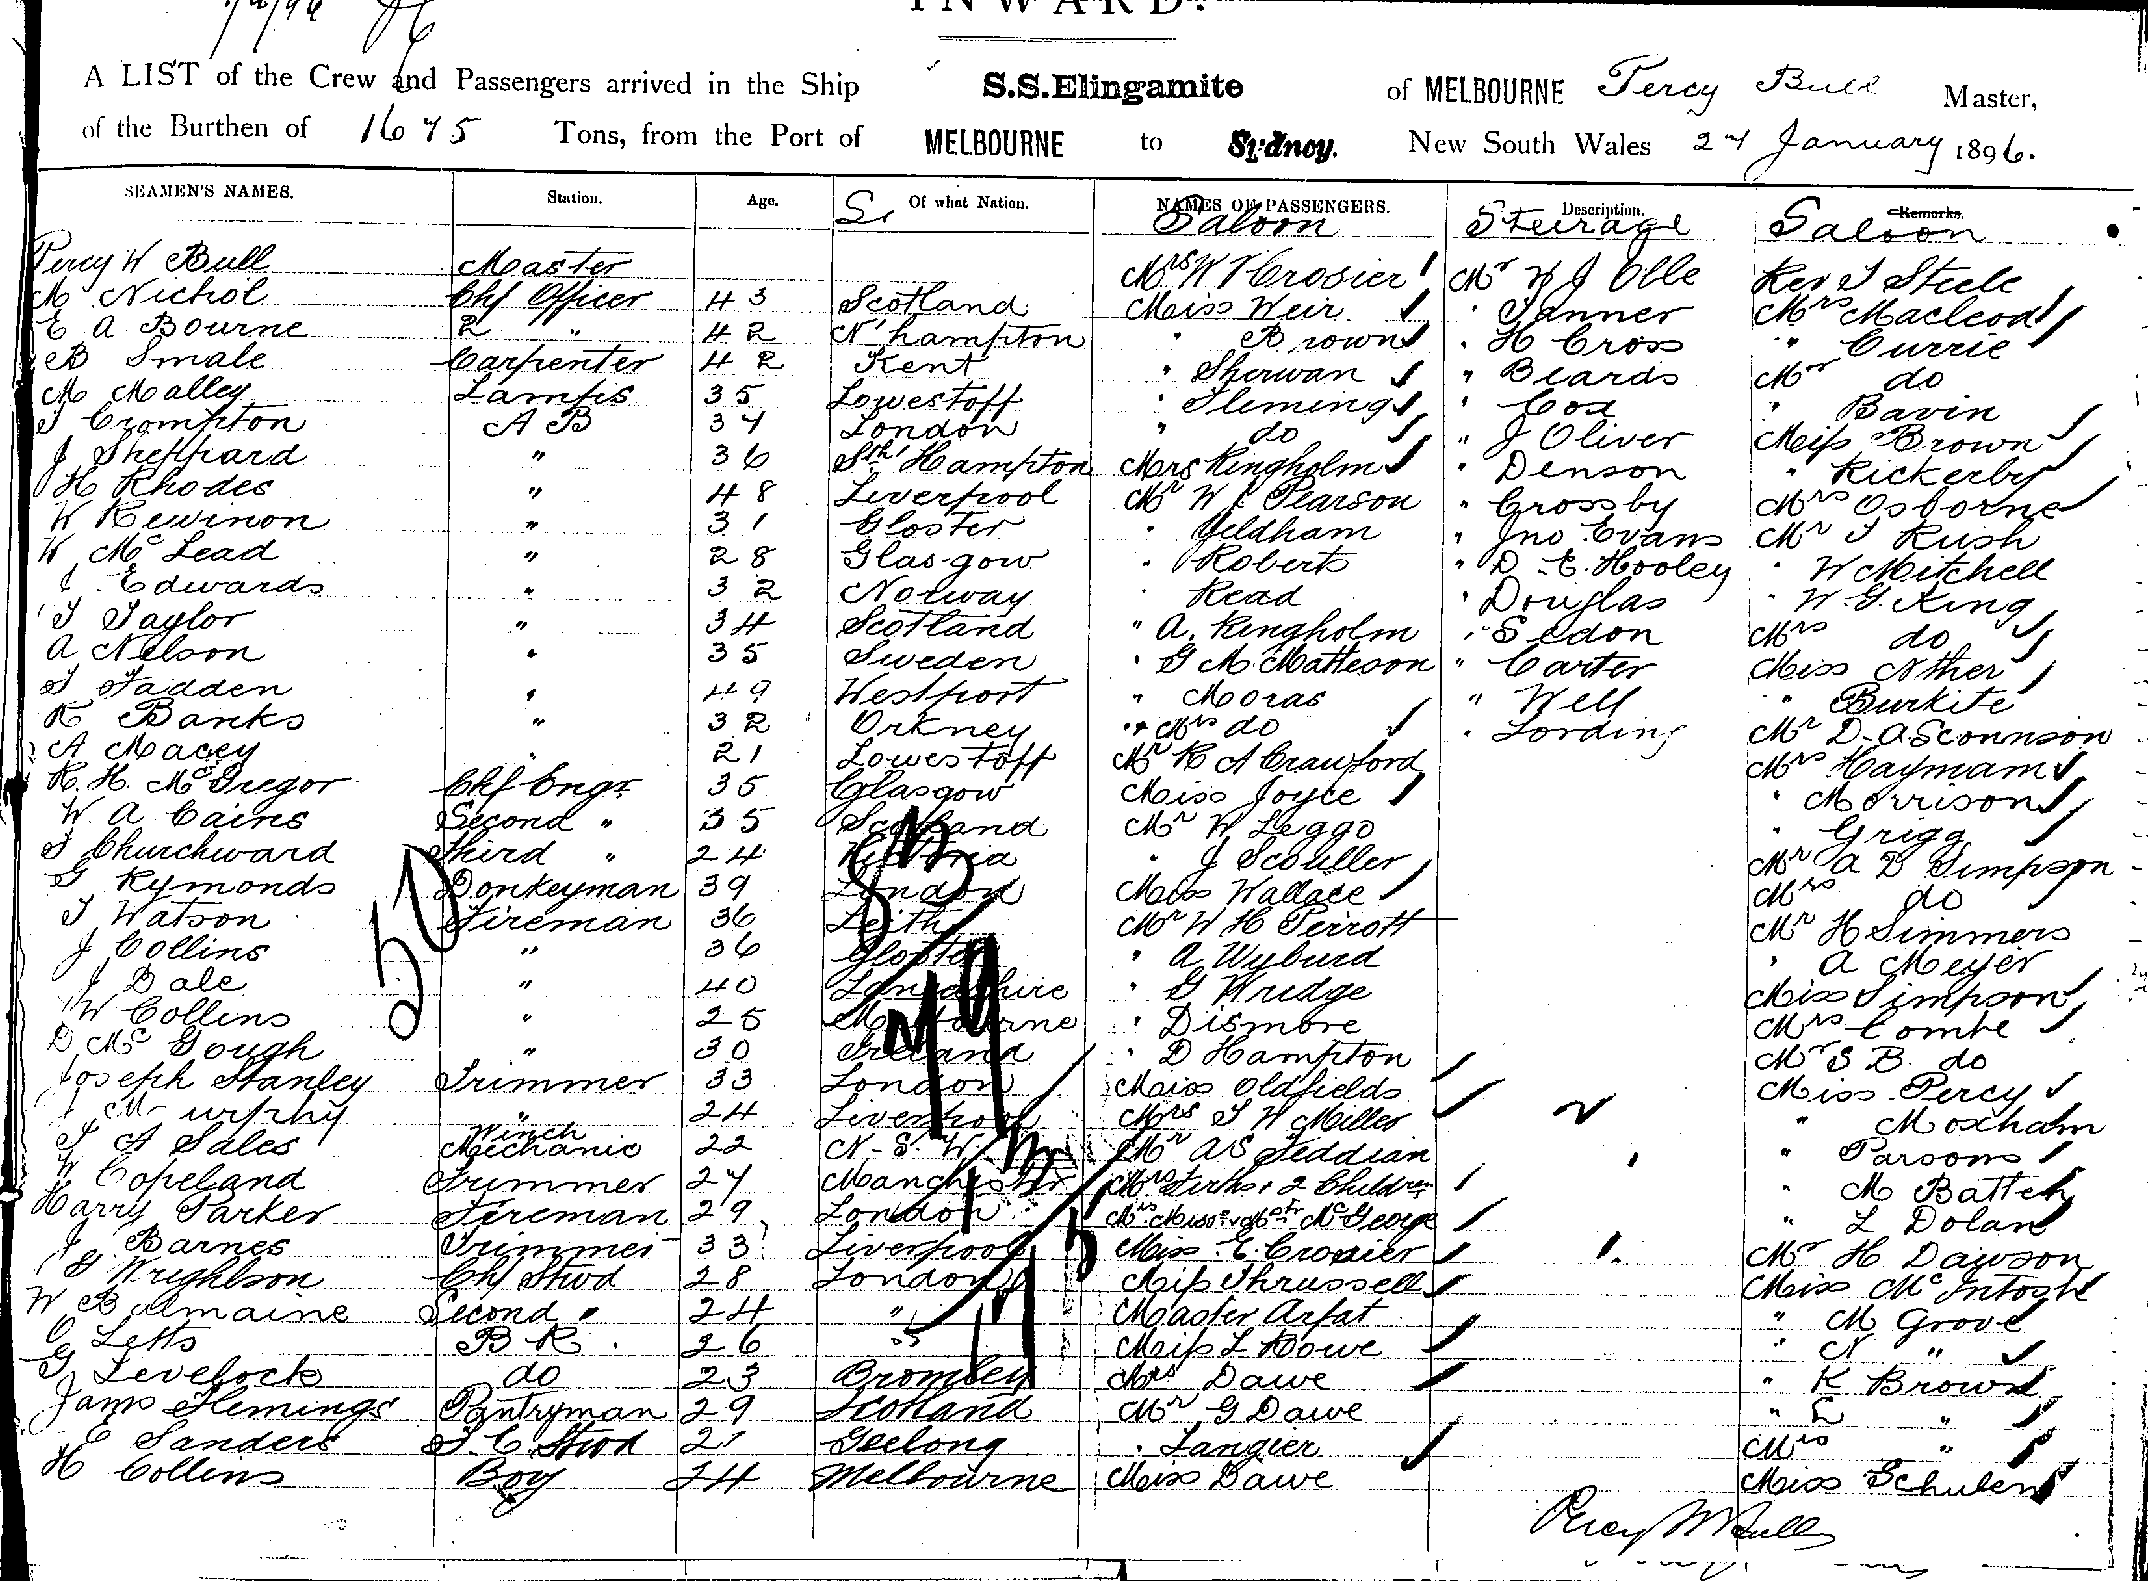 INWARD.
A LIST of the Crew and Passengers arrived in the Ship S.S.Elingamite of MELBOURNE Percy Bull Master,
of the Burthen of 1675 Tons, from the Port of MELBOURNE to Sydney. New South Wales 27 January 1896.
SEAMEN'S NAMES. Station. Age. Of what Nation. NAMES OF PASSENGERS. Description. Remarks.
Saloon Steerage Saloon
Percy W Bull Master Mrs W Crosier Mr W J Olle Rev J Steele
M Nichol Chf Officer 43 Scotland Miss Weir " Tanner Mrs Macleod
E A Bourne 2 " 42 N'hampton " Brown " H Cross " Currie
B Smale Carpenter 42 Kent " Sherwan " Beards Mr do
M Malley Lamps 35 Lowestoff " Fleming " Cox " Bavin
T Crompton A B 37 London " do " J Oliver Miss Brown
J Sheppard " 36 Sth Hampton Mrs Ringholm " Denson " Rickerby
H Rhodes " 48 Liverpool Mr W J Pearson " Crossby Mrs Osborne
W " 31 Gloster " Yeldham " Jno Evans Mr J Rush
W McLead " 28 Glasgow " Roberts " D. E. Hooley " W Mitchell
J Edwards " 32 Norway " Read " Douglas " W. G. King
T Taylor " 34 Scotland " A. Ringholm " Sedon Mrs do
A Nelson " 35 Sweden " G M Matteson " Carter Miss Nther
J Fadden " 49 Westport " Moras " Well " Burkite
R Banks " 32 Orkney " Mrs do " Lording Mr D.
A Macey " 21 Lowestoff Mr R A Crawford Mrs Haymam
R. H. McGregor Chf Engr 35 Glasgow Miss Joyce " Morrison
W A Cairns Second " 35 Scotland Mr W Leggo " Grigg
J Churchward Third " 24 Victoria " J Scouller Mr A D Simpson
G Rymonds Donkeyman 39 London Miss Wallace Mrs do
T Watson Fireman 36 Leith Mr W H Perrott Mr H Simmers
J Collins " 36 Gloster " A Wyburd " A Meyer
J Dale " 40 Lancashire " G Wridge Miss Simpson
W Collins " 25 Melbourne " Dismore Mrs Combe
D McGough " 30 Ireland " D Hampton Mr S B. do
Joseph Stanley Trimmer 33 London Miss Oldfields Miss Percy
J Murphy " 24 Liverpool Mrs T W Miller " Moxham
T A Sales Winch Mechanic 22 N. S. W. Mr A S Feddian " Parsons
W Copeland Trimmer 27 Manchester Mrs Firks & 2 Children " M Batten
Harry Parker Fireman 29 London Mrs Miss & Mstr McGeorge " L Dolan
J Barnes Trimmer 33 Liverpool Miss E. Crosier Mr H Dawson
G Wrightson Chf Stwd 28 London Miss Thrussell Miss McIntosh
W Balmaine Second " 24 " Master Arfat " M Grove
G Letts B R. 26 " Miss L Howe " N "
G Levelock do 23 Bromley Mrs Dawe " K Brown
Jams Flemings Pantryman 29 Scotland Mr G Dawe " L "
E Sanders S. C Stwd 21 Geelong " Langier Mrs "
H Collins Boy 14 Melbourne Miss Dawe Miss Schulen
Percy W Bull